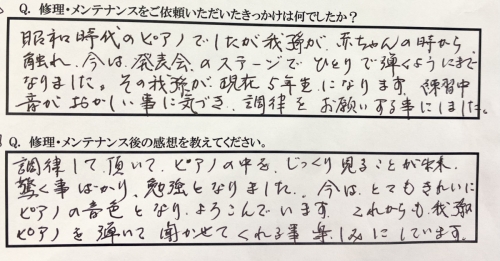 Q. 修理・メンテナンスをご依頼いただいたきっかけは何でしたか?
昭和時代のピアノでしたが我孫が、赤ちゃんの時から
触れ、今は、発表会のステージで ひとりで弾くようにまで
なりました。その我孫が現在5年生になります。練習中
音がおかしい事に気づき、調律をお願いする事にしました。
Q. 修理・メンテナンス後の感想を教えてください。
調律して頂いて、ピアノの中を、じっくり見ることが出来、
驚く事ばかり、勉強となりました。今は、とてもきれいに
ピアノの音色となり、よろこんでいます。これからも、我孫
ピアノを弾いて聞かせてくれる事楽しみにしています。